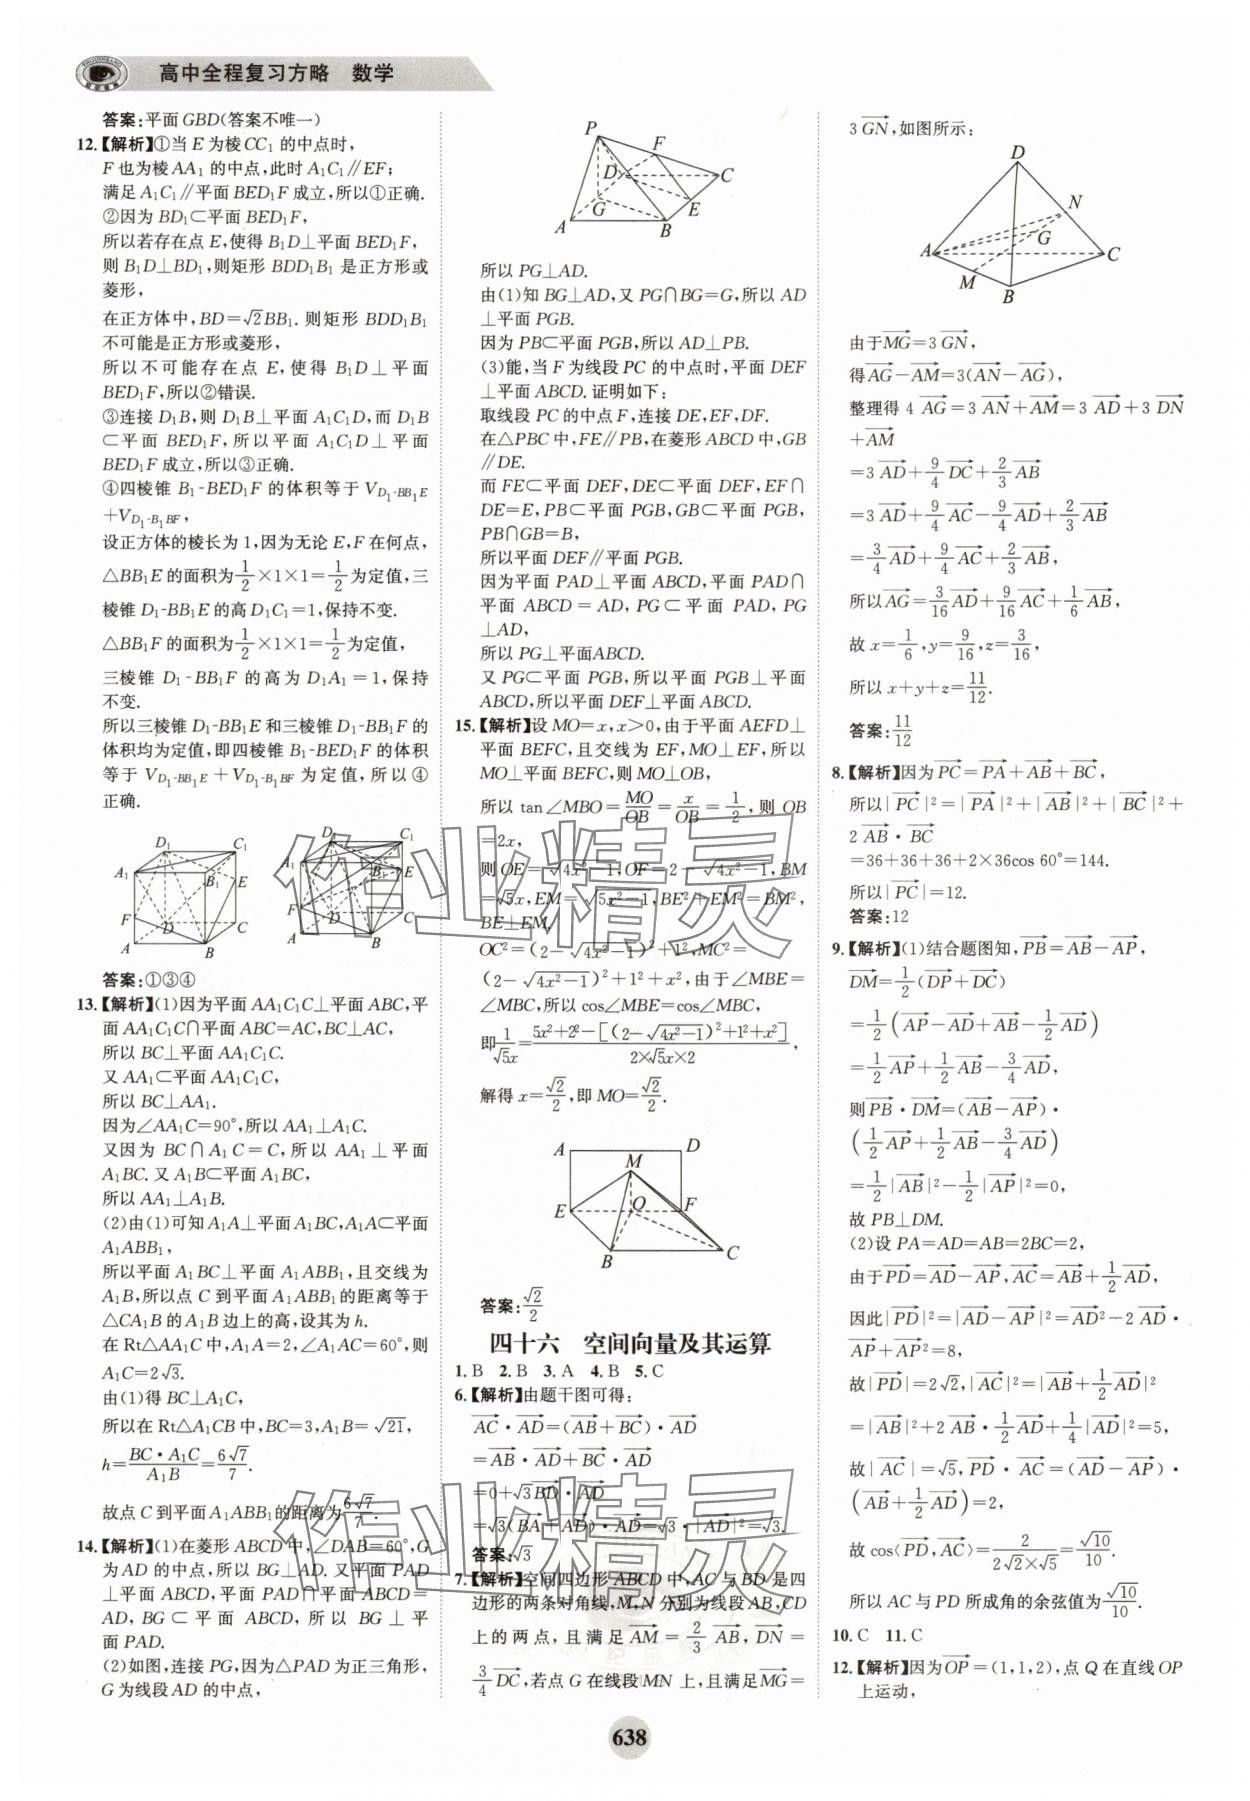 高中全程复习方略 数学
答案:平面GBD(答案不唯一)
12.【解析】①当E为棱CC₁的中点时,
F也为棱AA₁的中点,此时A₁C₁∥EF;
满足A₁C₁∥平面BED₁F成立,所以①正确.
②因为BD₁⊂平面BED₁F,
所以若存在点E,使得B₁D⊥平面BED₁F,
则B₁D⊥BD₁,则矩形BDD₁B₁是正方形或
菱形,
在正方体中,BD=√2BB₁.则矩形BDD₁B₁
不可能是正方形或菱形,
所以不可能存在点E,使得B₁D⊥平面
BED₁F,所以②错误.
③连接D₁B,则D₁B⊥平面A₁C₁D,而D₁B
⊂平面BED₁F,所以平面A₁C₁D⊥平面
BED₁F成立,所以③正确.
④四棱锥B₁-BED₁F的体积等于V_{D₁-BB₁E}
+V_{D₁-B₁BF},
设正方体的棱长为1,因为无论E,F在何点,
△BB₁E的面积为1/2×1×1=1/2为定值,三
棱锥D₁-BB₁E的高D₁C₁=1,保持不变.
△BB₁F的面积为1/2×1×1=1/2为定值,
三棱锥D₁-BB₁F的高为D₁A₁=1,保持
不变.
所以三棱锥D₁-BB₁E和三棱锥D₁-BB₁F的
体积均为定值,即四棱锥B₁-BED₁F的体积
等于V_{D₁-BB₁E}+V_{D₁-B₁BF}为定值,所以④
正确.
D₁ C₁ A₁ B₁ E F D C A B
D₁ C₁ A₁ B₁ E F D C A B
答案:①③④
13.【解析】(1)因为平面AA₁C₁C⊥平面ABC,平
面AA₁C₁C∩平面ABC=AC,BC⊥AC,
所以BC⊥平面AA₁C₁C.
又AA₁⊂平面AA₁C₁C,
所以BC⊥AA₁.
因为∠AA₁C=90°,所以AA₁⊥A₁C.
又因为BC∩A₁C=C,所以AA₁⊥平面
A₁BC.又A₁B⊂平面A₁BC,
所以AA₁⊥A₁B.
(2)由(1)可知A₁A⊥平面A₁BC,A₁A⊂平面
A₁ABB₁,
所以平面A₁BC⊥平面A₁ABB₁,且交线为
A₁B,所以点C到平面A₁ABB₁的距离等于
△CA₁B的A₁B边上的高,设其为h.
在Rt△AA₁C中,A₁A=2,∠A₁AC=60°,则
A₁C=2√3.
由(1)得BC⊥A₁C,
所以在Rt△A₁CB中,BC=3,A₁B=√21,
h=(BC·A₁C)/A₁B=6√7/7.
故点C到平面A₁ABB₁的距离为6√7/7.
14.【解析】(1)在菱形ABCD中,∠DAB=60°,G
为AD的中点,所以BG⊥AD.又平面PAD
⊥平面ABCD,平面PAD∩平面ABCD=
AD,BG⊂平面ABCD,所以BG⊥平
面PAD.
(2)如图,连接PG,因为△PAD为正三角形,
G为线段AD的中点,
P F D C G E A B
所以PG⊥AD.
由(1)知BG⊥AD,又PG∩BG=G,所以AD
⊥平面PGB.
因为PB⊂平面PGB,所以AD⊥PB.
(3)能,当F为线段PC的中点时,平面DEF
⊥平面ABCD.证明如下:
取线段PC的中点F,连接DE,EF,DF.
在△PBC中,FE∥PB,在菱形ABCD中,GB
∥DE.
而FE⊂平面DEF,DE⊂平面DEF,EF∩
DE=E,PB⊂平面PGB,GB⊂平面PGB,
PB∩GB=B,
所以平面DEF∥平面PGB.
因为平面PAD⊥平面ABCD,平面PAD∩
平面ABCD=AD,PG⊂平面PAD,PG
⊥AD,
所以PG⊥平面ABCD.
又PG⊂平面PGB,所以平面PGB⊥平面
ABCD,所以平面DEF⊥平面ABCD.
15.【解析】设MO=x,x>0,由于平面AEFD⊥
平面BEFC,且交线为EF,MO⊥EF,所以
MO⊥平面BEFC,则MO⊥OB,
所以tan∠MBO=MO/OB=x/OB=1/2,则OB
=2x,
则OE=√(4x²-1),OF=2-√(4x²-1),BM
=√5x,EM=√(5x²-1),BE²+EM²=BM²,
BE⊥EM,
OC²=(2-√(4x²-1))²+1²,MC²=
(2-√(4x²-1))²+1²+x²,由于∠MBE=
∠MBC,所以cos∠MBE=cos∠MBC,
即1/(√5x)=(5x²+2²-[(2-√(4x²-1))²+1²+x²])/(2×√5x×2),
解得x=√2/2,即MO=√2/2.
A D M E O F B C
答案:√2/2
四十六 空间向量及其运算
1.B 2.B 3.A 4.B 5.C
6.【解析】由题干图可得:
AC·AD=(AB+BC)·AD
=AB·AD+BC·AD
=0+√3BD·AD
=√3(BA+AD)·AD=√3·|AD|²=√3.
答案:√3
7.【解析】空间四边形ABCD中,AC与BD是四
边形的两条对角线,M,N分别为线段AB,CD
上的两点,且满足AM=2/3 AB,DN=
3/4 DC,若点G在线段MN上,且满足MG=
3 GN,如图所示:
D N G A C M B
由于MG=3 GN,
得AG-AM=3(AN-AG),
整理得4 AG=3 AN+AM=3 AD+3 DN
+AM
=3 AD+9/4 DC+2/3 AB
=3 AD+9/4 AC-9/4 AD+2/3 AB
=3/4 AD+9/4 AC+2/3 AB,
所以AG=3/16 AD+9/16 AC+1/6 AB,
故x=1/6,y=9/16,z=3/16,
所以x+y+z=11/12.
答案:11/12
8.【解析】因为PC=PA+AB+BC,
所以|PC|²=|PA|²+|AB|²+|BC|²+
2 AB·BC
=36+36+36+2×36cos 60°=144.
所以|PC|=12.
答案:12
9.【解析】(1)结合题图知,PB=AB-AP,
DM=1/2(DP+DC)
=1/2(AP-AD+AB-1/2 AD)
=1/2 AP+1/2 AB-3/4 AD,
则PB·DM=(AB-AP)·
(1/2 AP+1/2 AB-3/4 AD)
=1/2|AB|²-1/2|AP|²=0,
故PB⊥DM.
(2)设PA=AD=AB=2BC=2,
由于PD=AD-AP,AC=AB+1/2 AD,
因此|PD|²=|AD-AP|²=AD²-2 AD·
AP+AP²=8,
故|PD|=2√2,|AC|²=|AB+1/2 AD|²
=|AB|²+2 AB·1/2 AD+1/4|AD|²=5,
故|AC|=√5,PD·AC=(AD-AP)·
(AB+1/2 AD)=2,
故cos⟨PD,AC⟩=2/(2√2×√5)=√10/10.
所以AC与PD所成角的余弦值为√10/10.
10.C 11.C
12.【解析】因为OP=(1,1,2),点Q在直线OP
上运动,
作业精灵
作业精灵
638